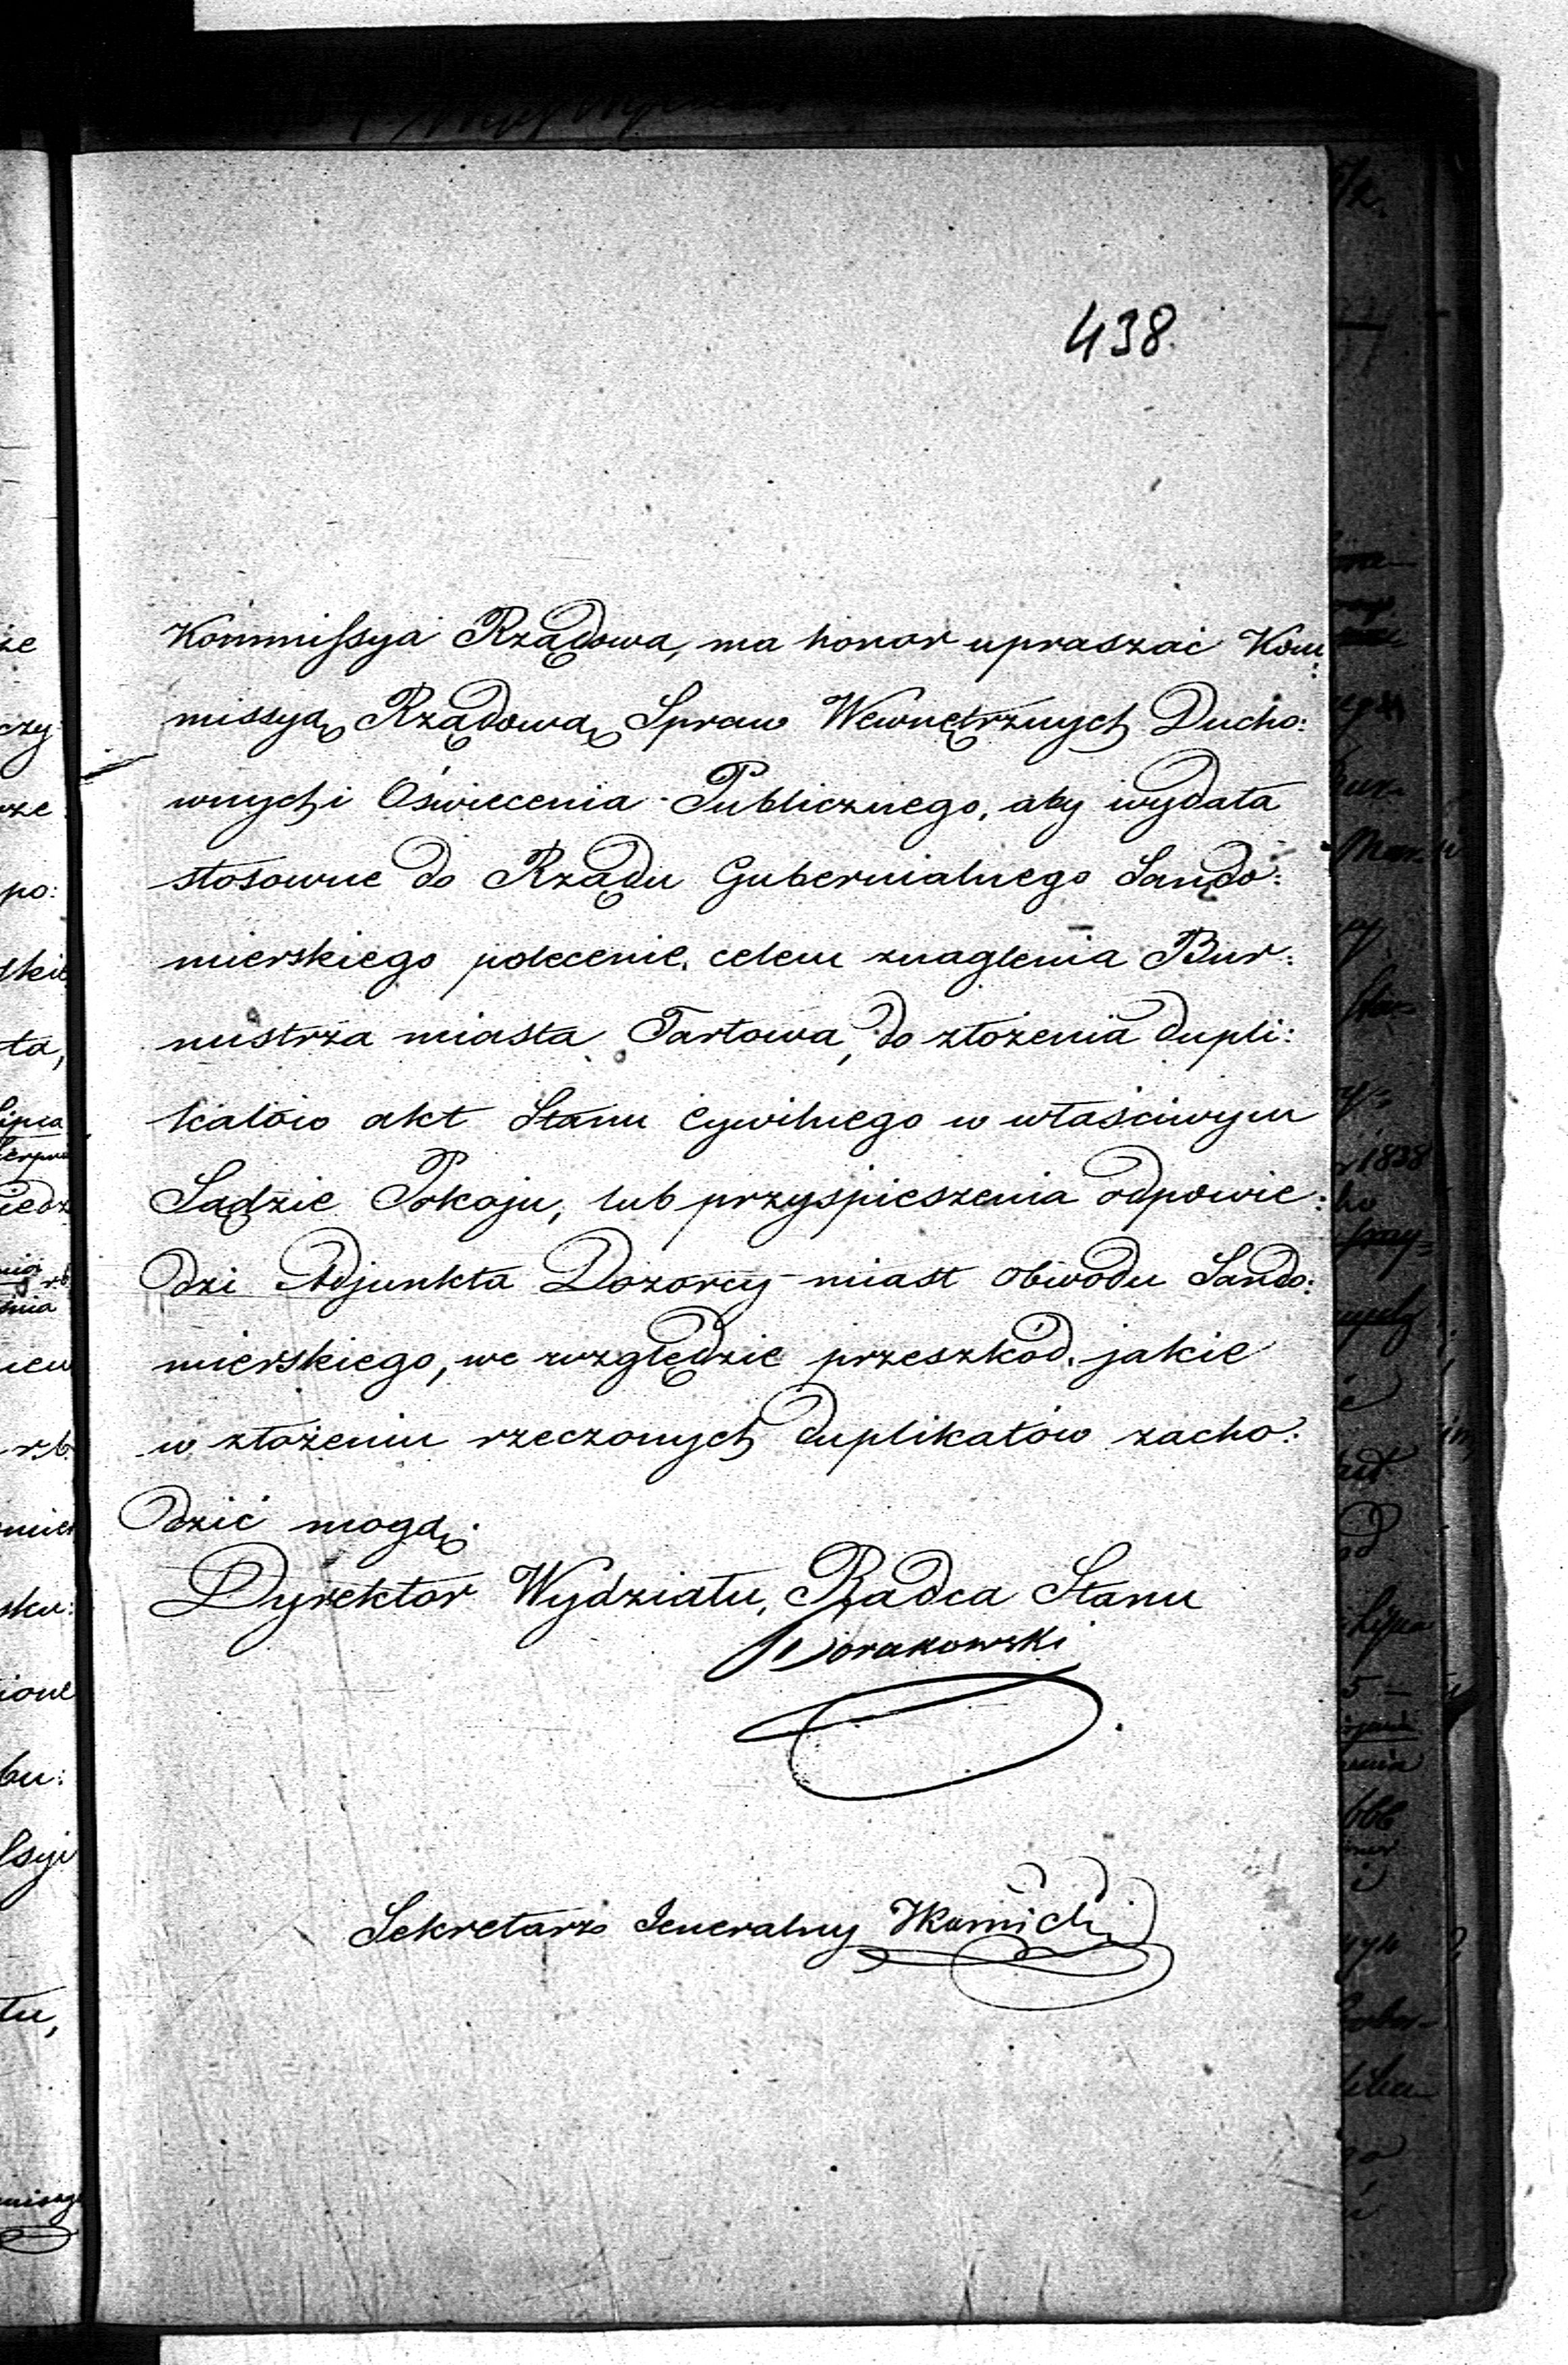 438.
Kommissya Rządowa, ma honor upraszać Kom:
missyą Rządową Spraw Wewnętrznych Ducho:
wnych i Oświecenia Publicznego, aby wydała
stosowne do Rządu Gubernialnego Sando:
mierskiego polecenie, celem znaglenia Bur:
mistrza miasta Tarłowa, do złożenia dupli:
katów akt Stanu Cywilnego w właściwym
Sądzie Pokoju, lub przyspieszenia odpowie:
dzi Adjunkta Dozorcy miast obwodu Sando:
mierskiego, we względzie przeszkód, jakie
w złożeniu rzeczonych duplikatów zacho:
dzić mogą.
Dyrektor Wydziału, Radca Stanu
Sekretarz Jeneralny